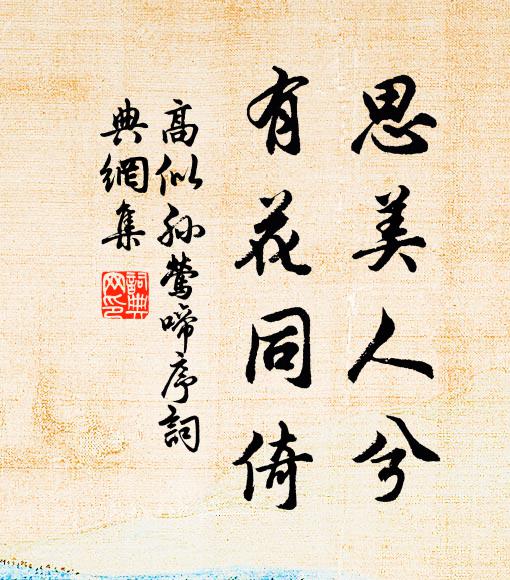 思美人兮
有花同倚
高似孙莺啼序詞
典網集
詞典网印